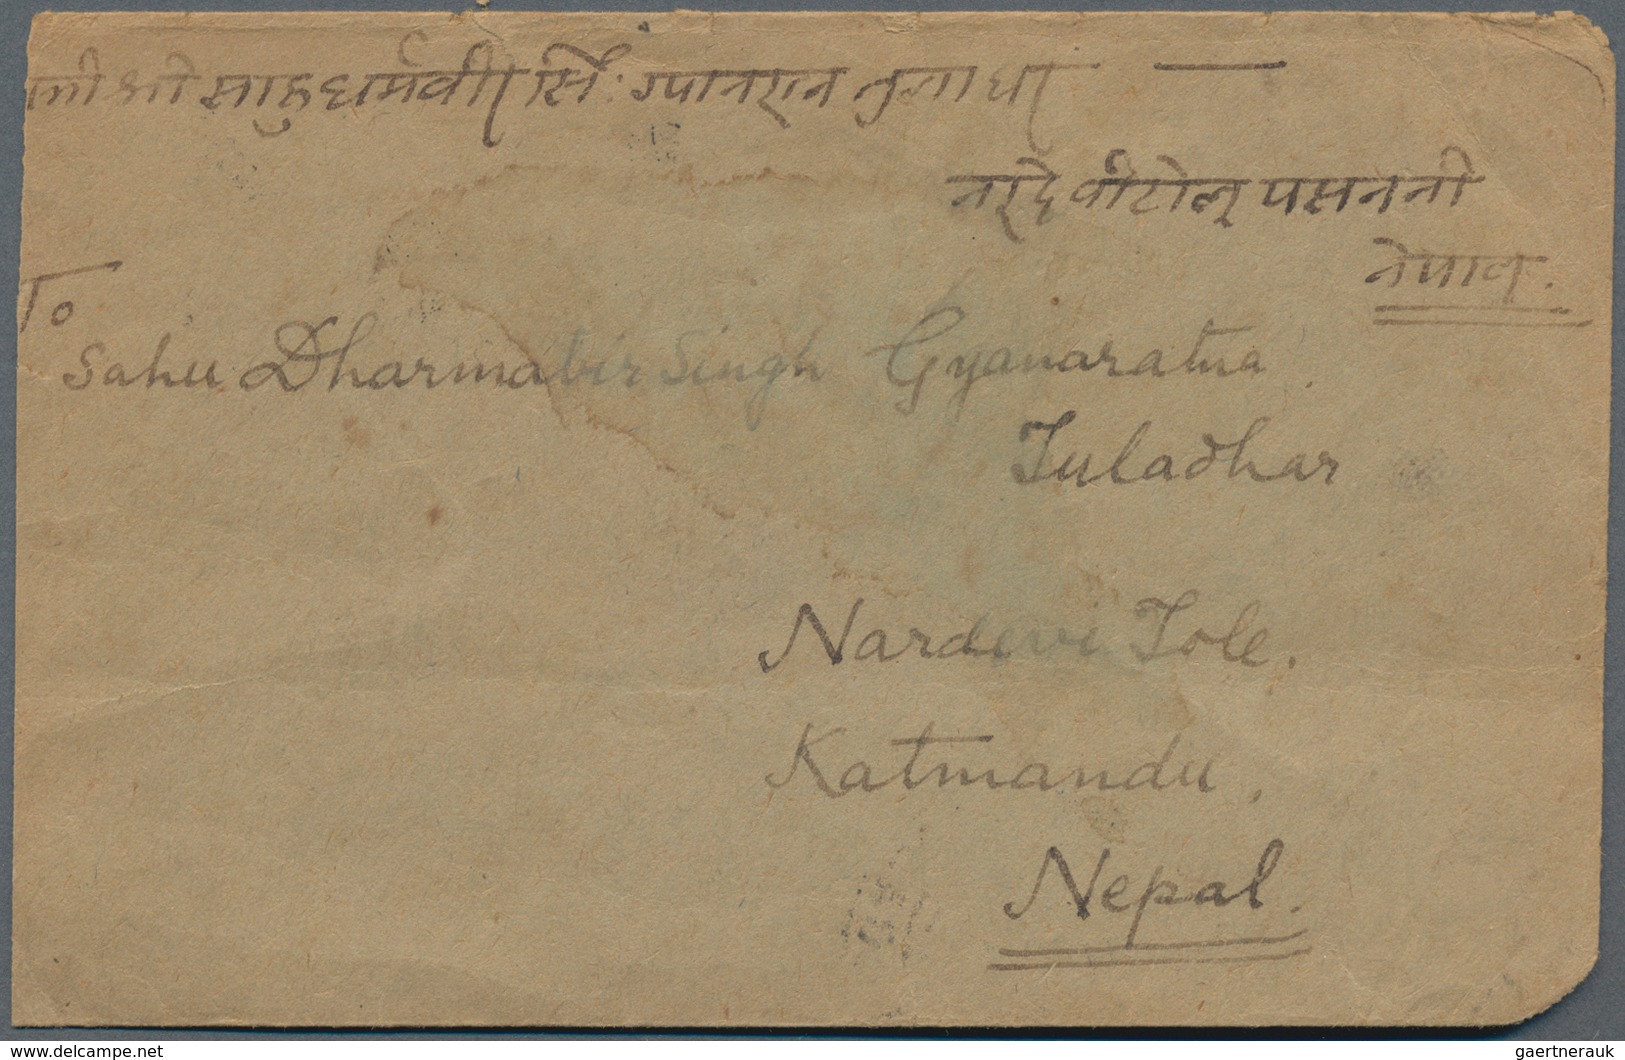 श्री साहु धर्मवीर सिं: ग्यानरत्न तुलाधर
नरदेवी टोल्
नेपाल.
To
Sahu Dharmabir Singh Gyanaratna
Tuladhar
Nardevi Tole.
Katmandu.
Nepal.
© delcampe.net
gaertnerauk